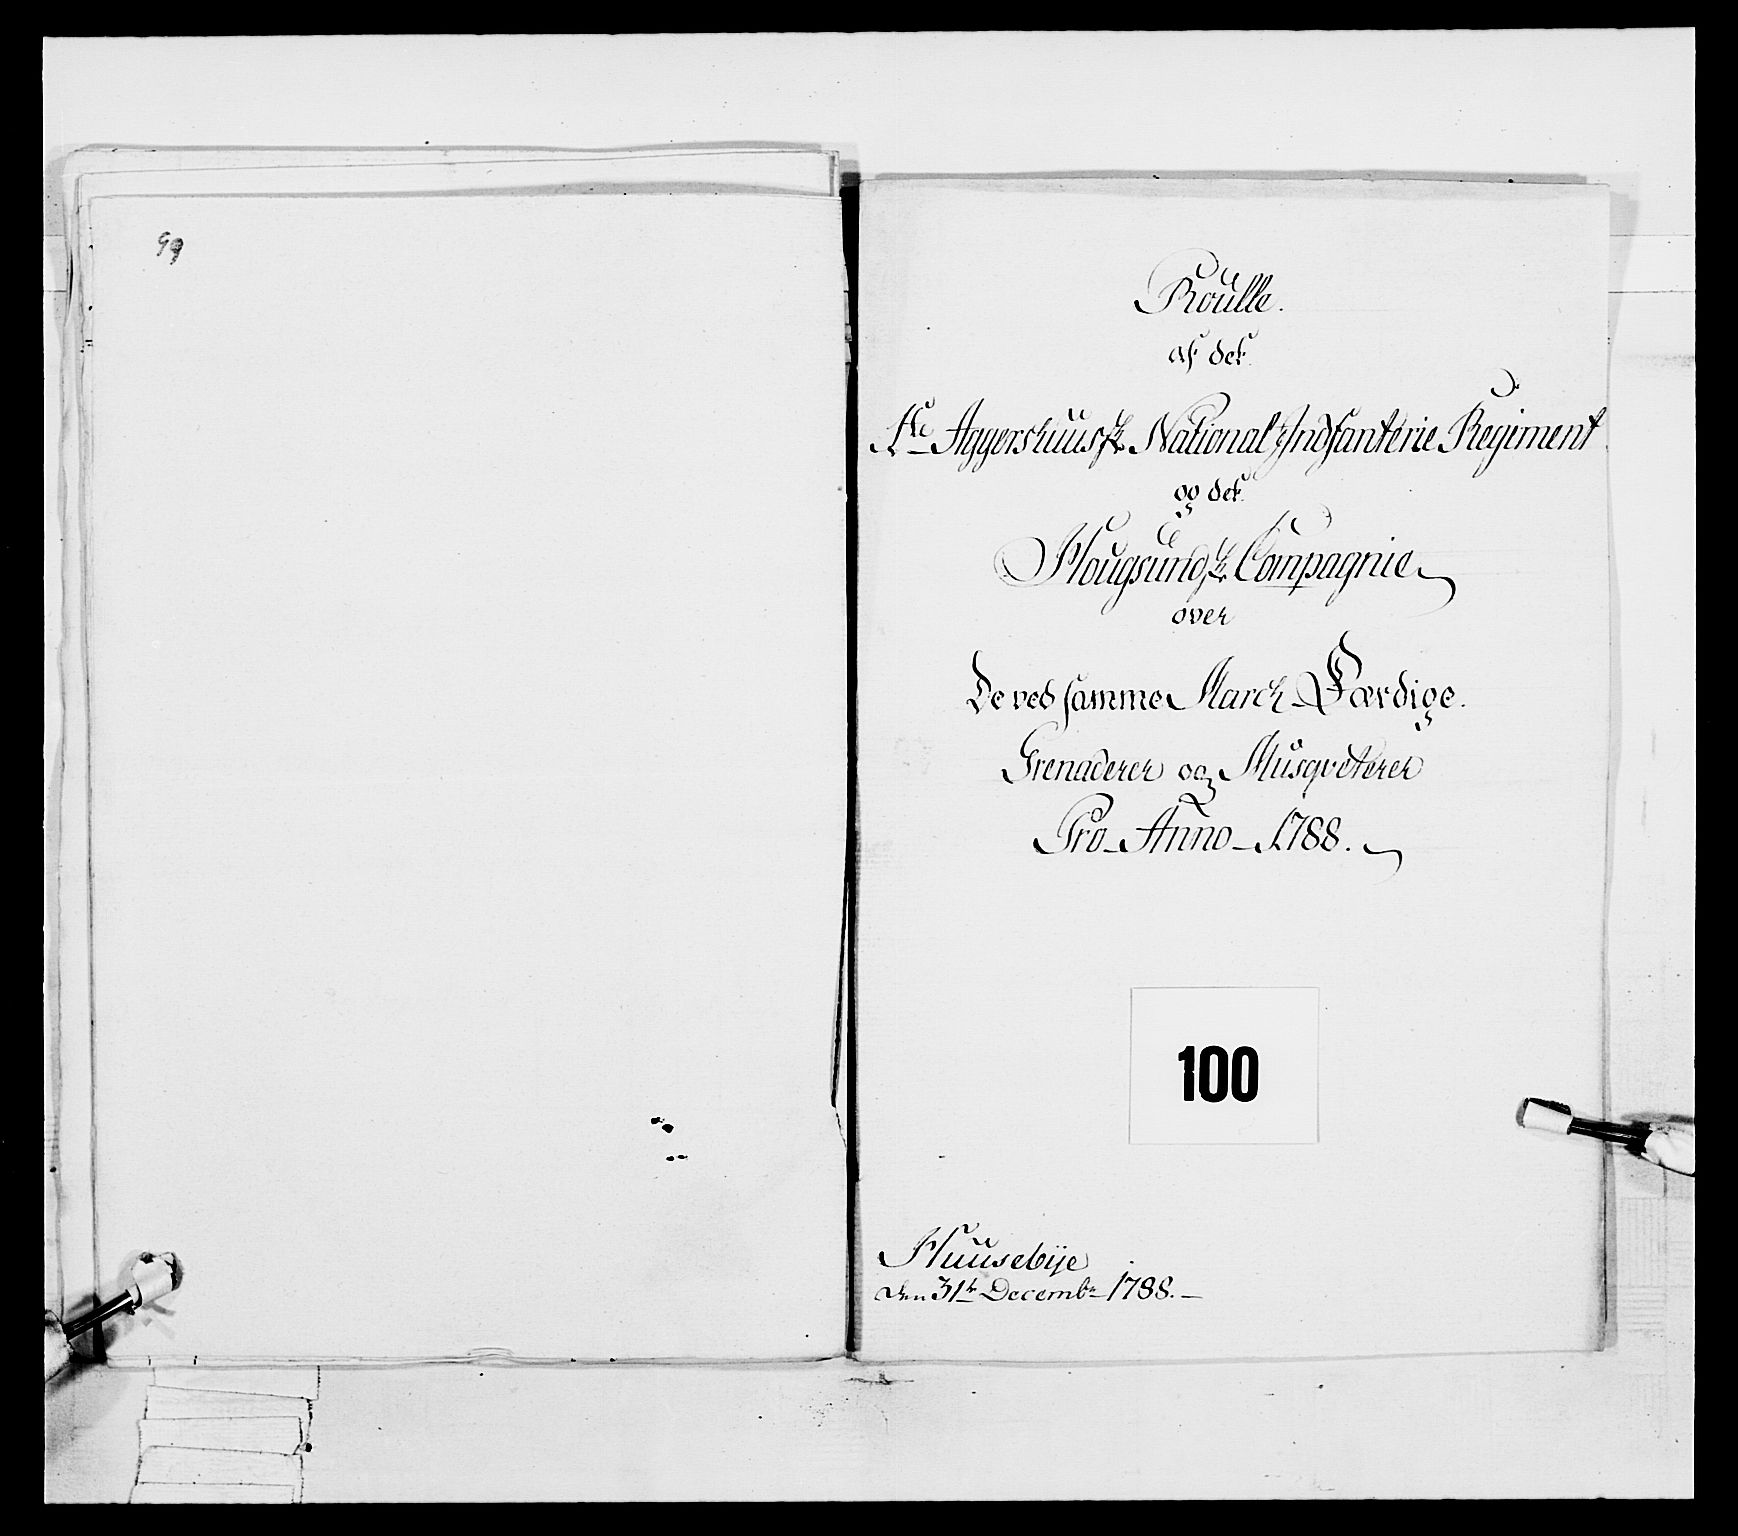 99
Roulle.
af det
1te Aggershuusske National Indfanterie Regiment
og det
Hougsundske Compagnie
over
De ved samme March Færdige.
Grenaderer og Musqveterer
Pro Anno 1788.
100
Huusebÿe
den 31te Decembr 1788.